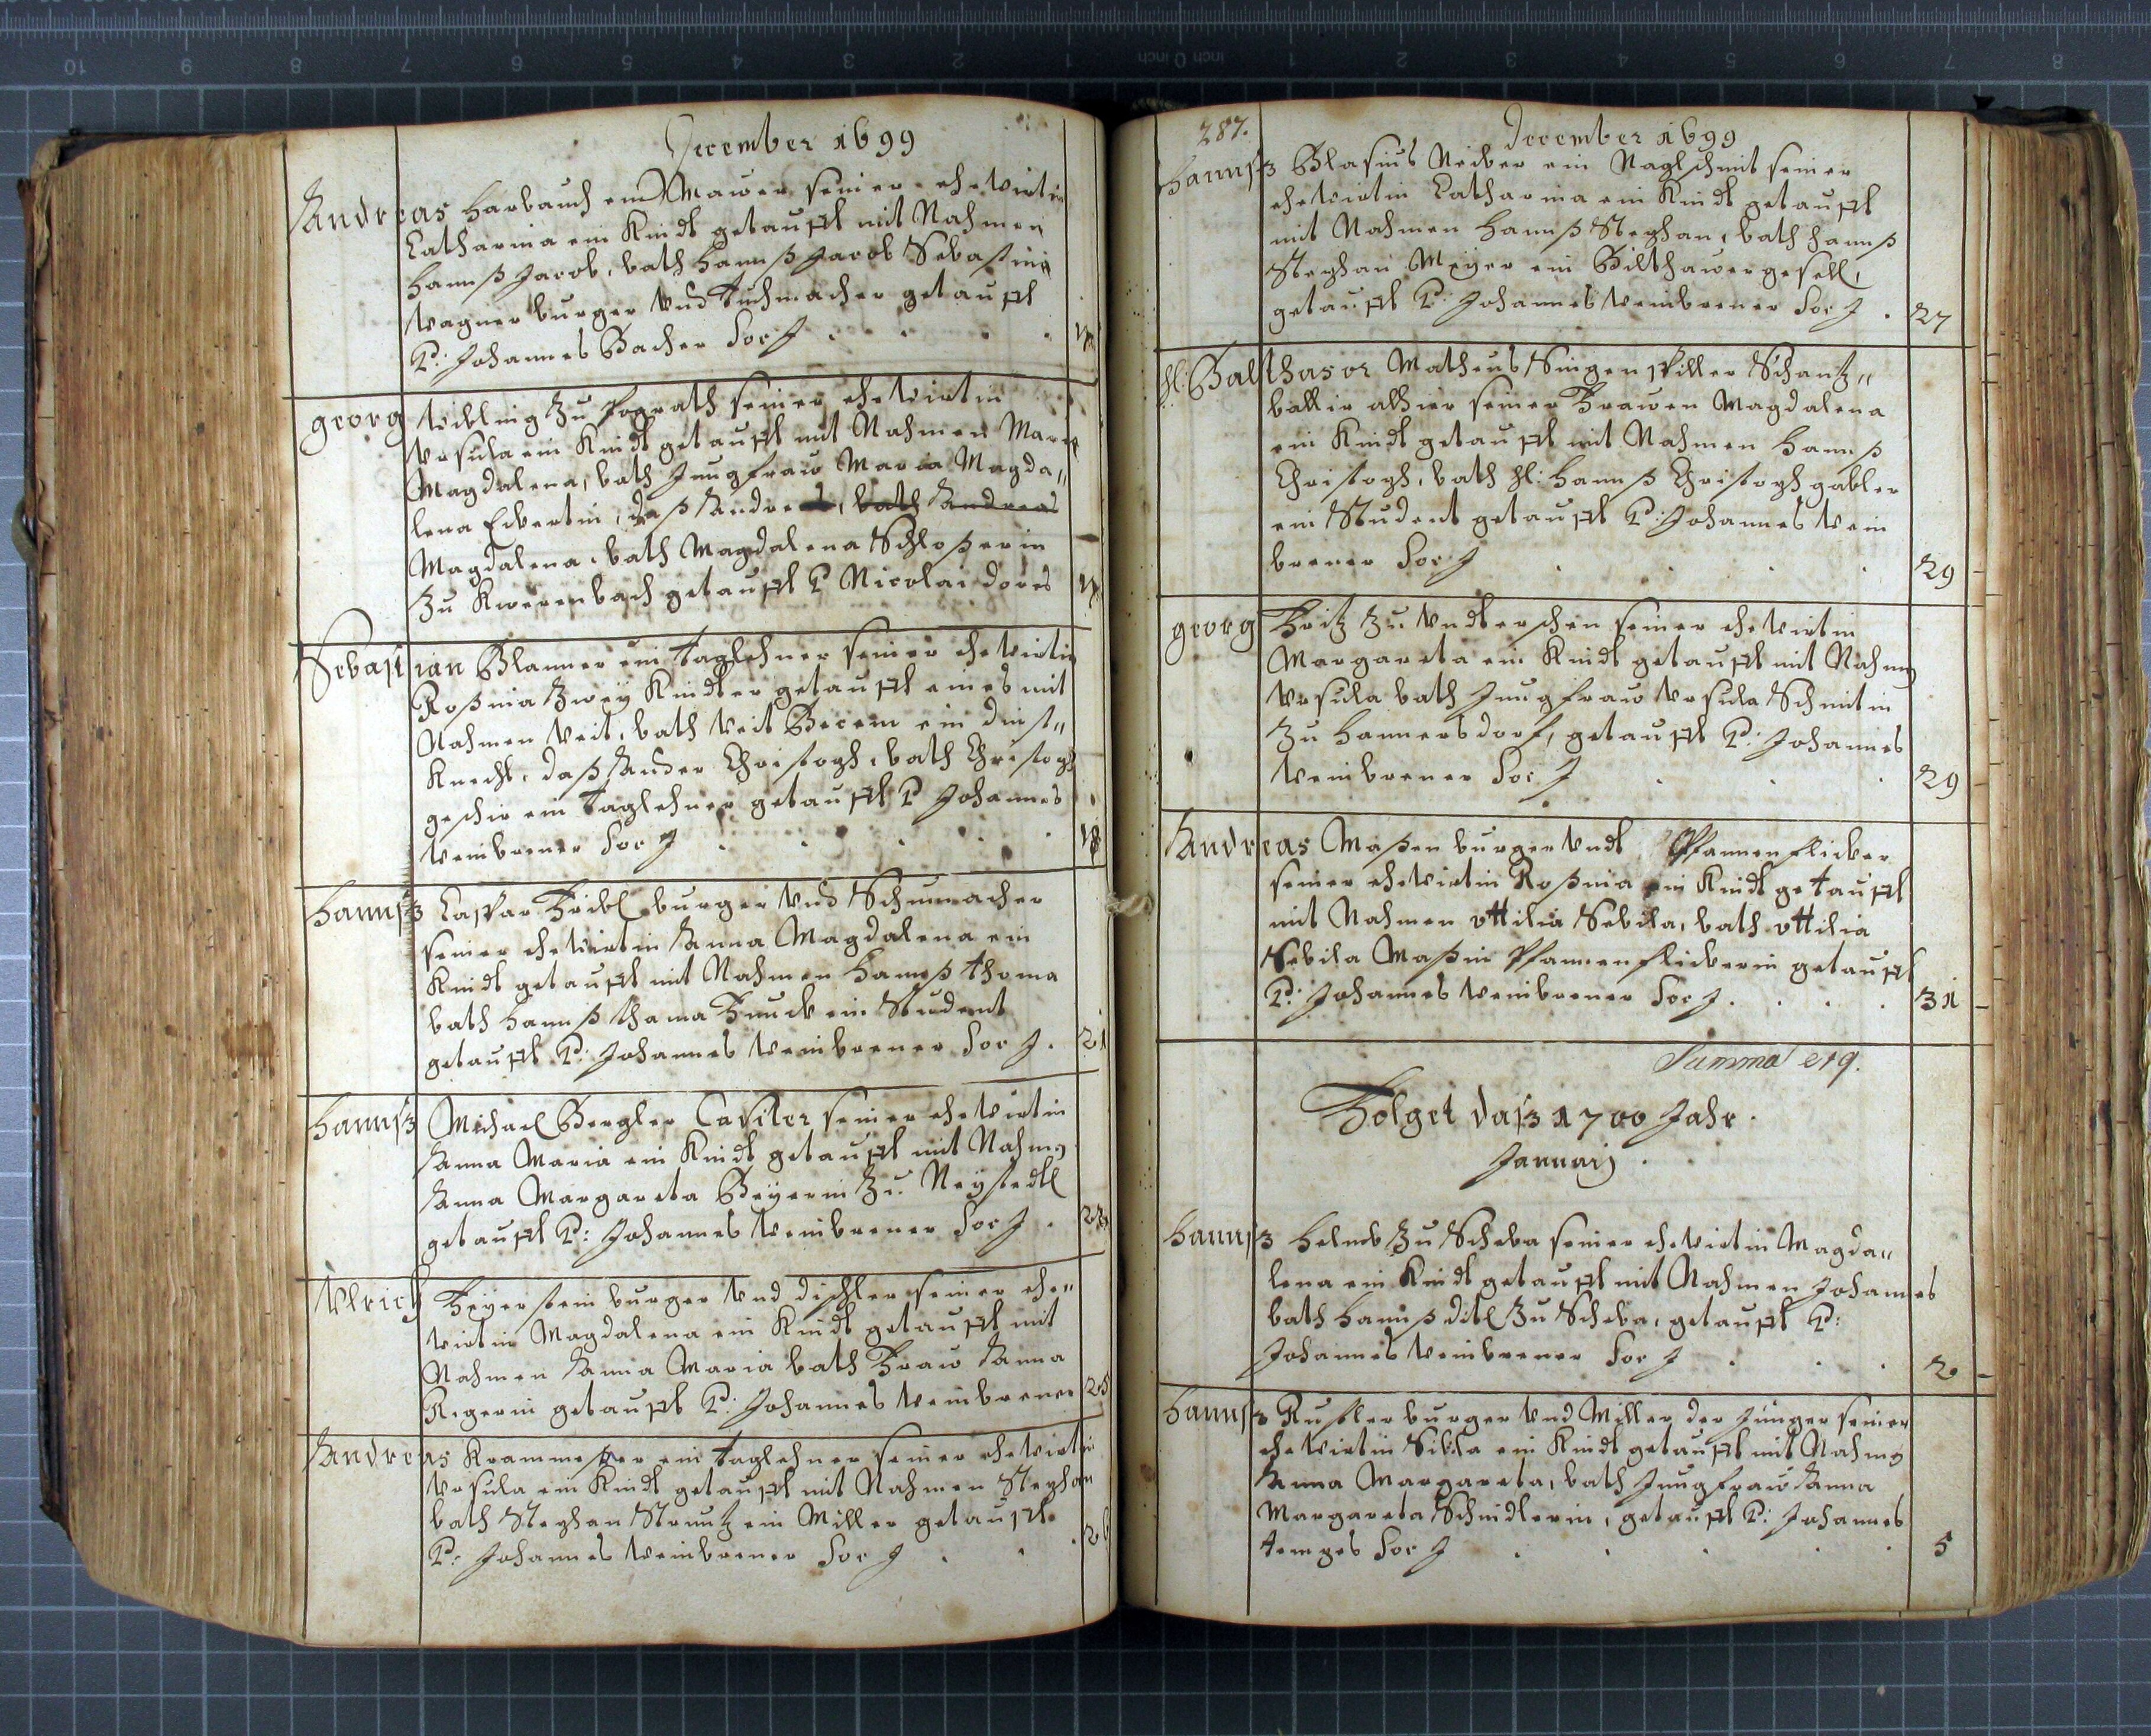 December 1699
Andreas Harbauch ein Mawer seiner ehewirtin
Catharina ein Kindt getaufft mit Nahmen
Hannß Jacob, bath Hannß Jacob Sebastina
Wagner burger vnd Tuchmacher getaufft
P: Johannes Bacher Soc J
georg zu seiner ehewirtin
Vrsula ein Kindt getaufft mit Nahmen Maria
Magdalena, bath Jungfraw Maria Magda„
lena Eckertin, daß Andre bath Andreas
Magdalena, bath Magdalena Schloßerin
zu getaufft P Nicolai
Sebastian Blanner ein Taglehner seiner ehewirtin
Roßina zwey Kindter getaufft eines mit
Nahmen Veit, bath Veit ein dinst„
Knecht, daß Ander Christoph, bath Christoph
ein Taglehner getaufft P Johannes
Weinbrener Soc J 18
Hannß Caspar burger vnd Schumacher
seiner ehewirtin Anna Magdalena ein
Kindt getaufft mit Nahmen Hannß Thoma
bath Hannß Thama ein Student
getaufft P: Johannes Weinbrener Soc J. 21
Hannß Michael Bergler seiner ehewirtin
Anna Maria ein Kindt getaufft mit Nahmen
Anna Margareta Beyerin zu Neystedtl
getaufft P: Johannes Weinbrener Soc J. 23
Vlrich Beyerstein burger vnd dischler seiner ehe„
wirtin Magdalena ein Kindt getaufft mit
Nahmen Anna Maria bath Fraw Anna
getaufft P: Johannes Weinbrener 25
Andreas ein Taglehner seiner ehewirtin
Vrsula ein Kindt getaufft mit Nahmen Stephan
bath Stephan Struntz ein Miller getaufft
P: Johannes Weinbrener Soc J 26
287.
December 1699
Hannß Blasius Necker ein Naglschmit seiner
ehewirtin Catharina ein Kindt getaufft
mit Nahmen Hannß Stephan, bath Hannß
Stephan Meyer ein Bilthawer gesell,
getaufft P: Johannes Weinbrener Soc J. 27
H: Balthasor Matheus Singer
alhier seiner Frawen Magdalena
ein Kindt getaufft mit Nahmen Hannß
Christoph, bath H: Hannß Christoph gabler
ein Student getaufft P: Johannes Wein
brener Soc J 29
georg Fritz zu seiner ehewirtin
Margareta ein Kindt getaufft mit Nahmen
Vrsula bath Jungfraw Vrsula Schmitin
zu Hannersdorf, getaufft P: Johannes
Weinbrener Soc J 29
Andreas Maßen burger vndt Pfannenflicker
seiner ehewirtin Roßina ein Kindt getaufft
mit Nahmen Ottilia Sebila, bath Ottilia
Sebila Maßin Pfannenflickerin getaufft
P: Johannes Weinbrener Soc J. 31
Summa 219.
Folget daß 1700 Jahr.
Januarij.
Hannß Helmb zu Scheba seiner ehewirtin Magda„
lena ein Kindt getaufft mit Nahmen Johannes
bath Hannß Ditl zu Scheba, getaufft P:
Johannes Weinbrener Soc J 2
Hannß burger vnd Miller der Jünger seiner
ehewirtin ein Kindt getaufft mit Nahmen
Anna Margareta, bath Jungfraw Anna
Margareta Schindlerin, getaufft P: Johannes
Soc J 5